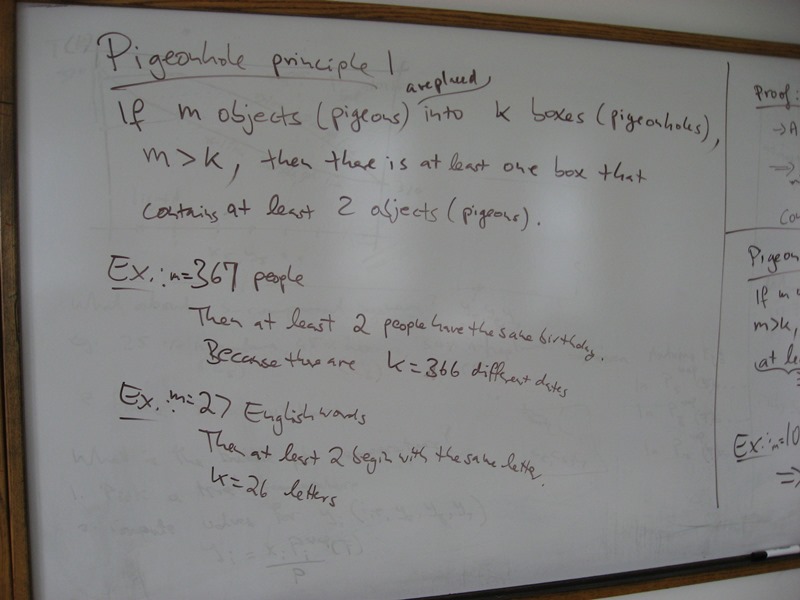 Pigeonhole principle 1
are placed
If m objects (pigeons) into k boxes (pigeonholes),
m > k, then there is at least one box that
contains at least 2 objects (pigeons).
Ex.: m=367 people
Then at least 2 people have the same birthday.
Because there are k=366 different dates
Ex.: m=27 English words
Then at least 2 begin with the same letter.
k=26 letters
Proof:
→ A
⇒
Co
Pigeon
If m
m>k,
at le
Ex.: m=10
⇒